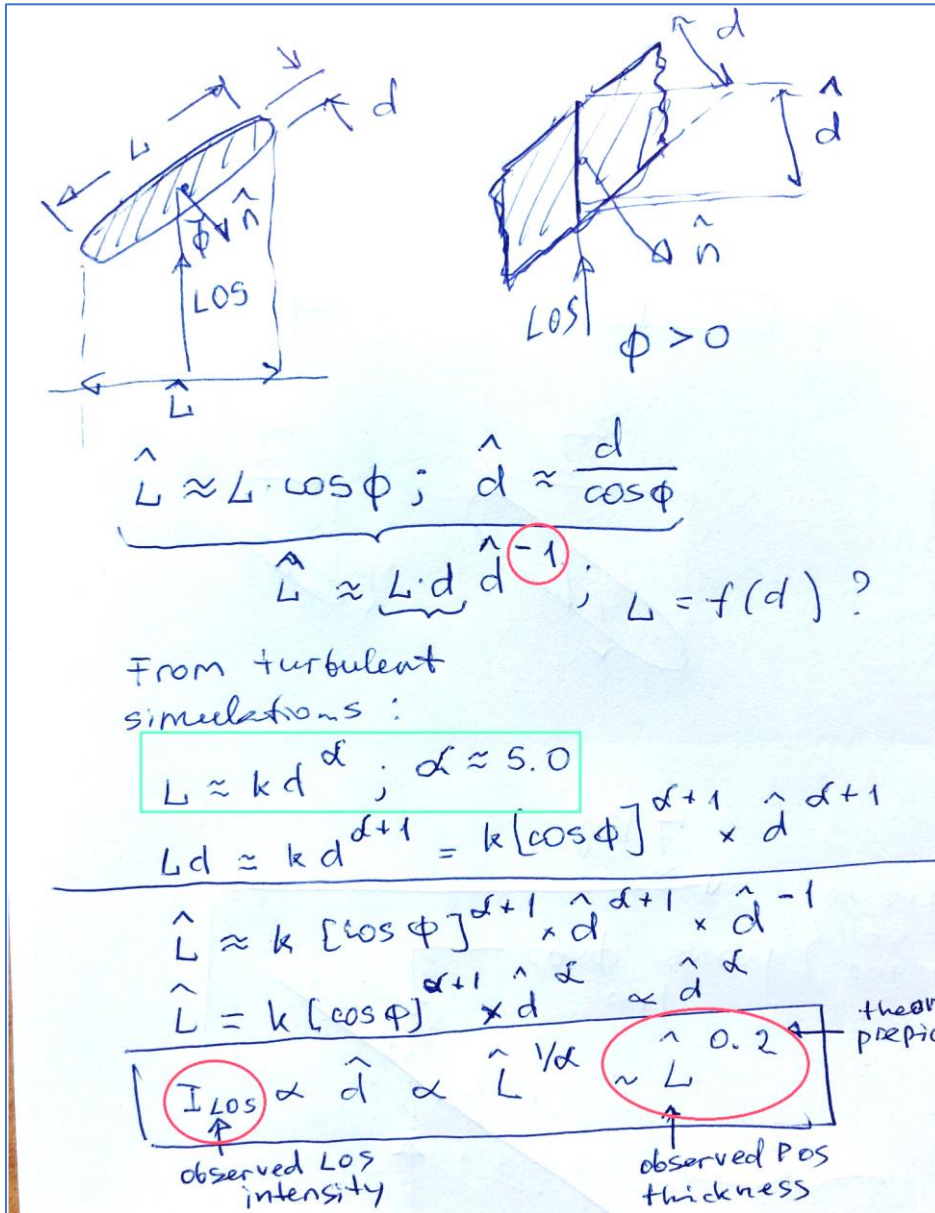 L d
n̂
ϕ
LOS
L̂
d
d̂
n̂
LOS
ϕ > 0
L̂ ≈ L · cosϕ ; d̂ ≈ d / cosϕ
L̂ ≈ L·d d̂^-1 ; L = f(d) ?
From turbulent
simulations :
L ≈ k d^α ; α ≈ 5.0
Ld ≈ k d^α+1 = k[cosϕ]^α+1 × d̂^α+1
L̂ ≈ k [cosϕ]^α+1 × d̂^α+1 × d̂^-1
L̂ = k [cosϕ]^α+1 × d̂^α ∝ d̂^α
I_LOS ∝ d̂ ∝ L̂^1/α ~ L̂^0.2
observed LOS
intensity
observed POS
thickness